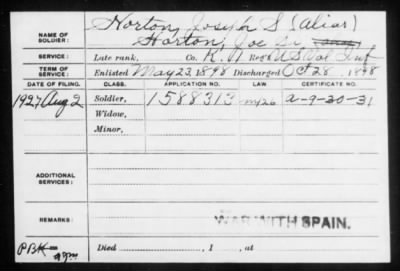 NAME OF SOLDIER: Horton, Joseph S. (Alias)
Horton, Joe Sr.
SERVICE: Late rank, Co. K, Reg't U S Vol Inf
TERM OF SERVICE: Enlisted May 23, 1898 Discharged Oct 28, 1898
DATE OF FILING. CLASS. APPLICATION NO. LAW CERTIFICATE NO.
1927 Aug 2 Soldier, 1588313 my26 a-9-30-31
Widow,
Minor,
ADDITIONAL SERVICES:
REMARKS: WAR WITH SPAIN.
PBK
Died , 1 , at